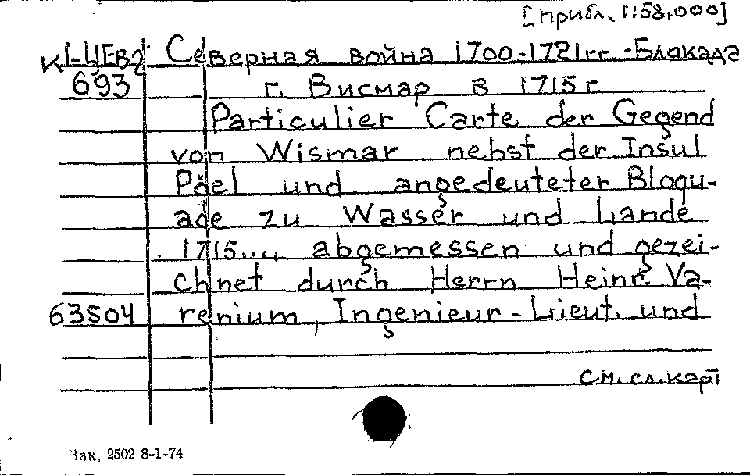 [прибл. 1:58,000]
К1-ЦЕВ2 Северная война 1700-1721гг.-Блакада
693 г. Висмар в 1715 г
Particulier Carte der Gegend
von Wismar nebst der Insul
Pöel und angedeuteter Bloqu-
ade zu Wasser und Lande
1715... abgemessen und gezei-
chnet durch Herrn Heinr. Va-
63504 renium, Ingenieur-Lieut. und
См. сл. карт
Зак. 2502 8-1-74